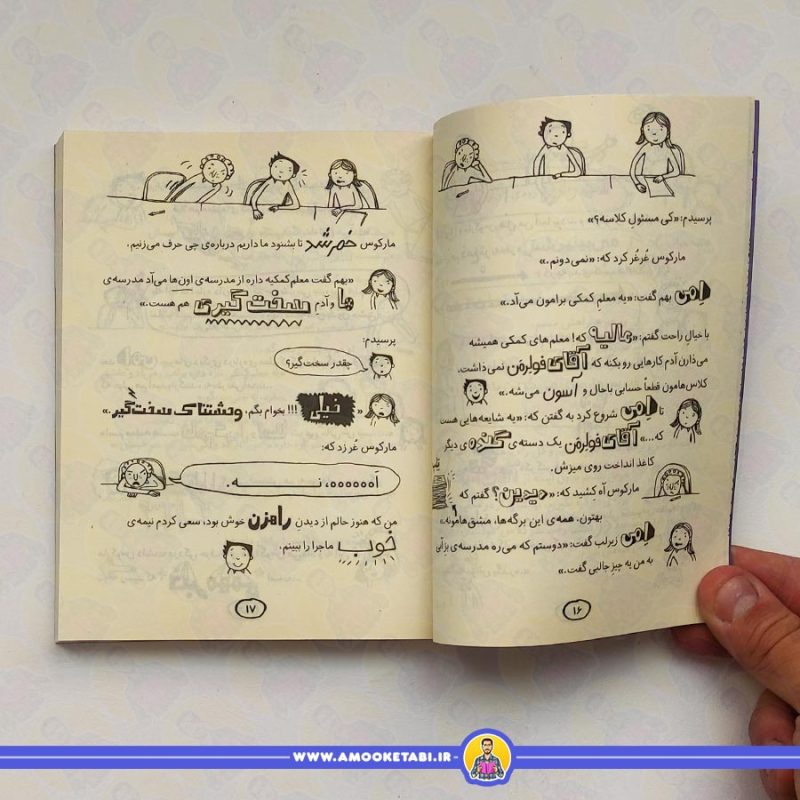 پرسیدم: «کی مسئول کلاسه؟»
مارکوس غُرغُر کرد که: «نمی‌دونم.»
اِمی بهم گفت: «یه معلم کمکی برامون می‌آد.»
با خیال راحت گفتم: «عالیه که! معلم‌های کمکی همیشه
می‌ذارن آدم کارهایی رو بکنه که آقای فولرمَن نمی‌ذاشت.
کلاس‌هامون قطعاً حسابی باحال و آسون می‌شه.»
تا اِمی شروع کرد به گفتن که: «یه شایعه‌هایی هست
که...» آقای فولرمَن یک دسته‌ی گُنده‌ی دیگر
کاغذ انداخت روی میزش.
مارکوس آه کشید که: «دیدین؟ گفتم که
بهتون. همه‌ی این برگه‌ها، مشق‌هامونه»
اِمی زیرلب گفت: «دوستم که می‌ره مدرسه‌ی
به من یه چیز جالبی گفت.»
۱۶
مارکوس خم شد تا بشنود ما داریم درباره‌ی چی حرف می‌زنیم.
«بهم گفت معلم کمکیه داره از مدرسه‌ی اون‌ها می‌آد مدرسه‌ی
ما و آدم سخت‌گیری هم هست.»
پرسیدم:
چقدر سخت‌گیر؟
«خیلی!!! بخوام بگم، وحشتناک سخت‌گیر.»
مارکوس غُر زد که:
آه‌ه‌ه‌ه‌ه‌ه، نـــــه.
من که هنوز حالم از دیدنِ رامزن خوش بود، سعی کردم نیمه‌ی
خوب ماجرا را ببینم.
۱۷
WWW.AMOOKETABI.IR